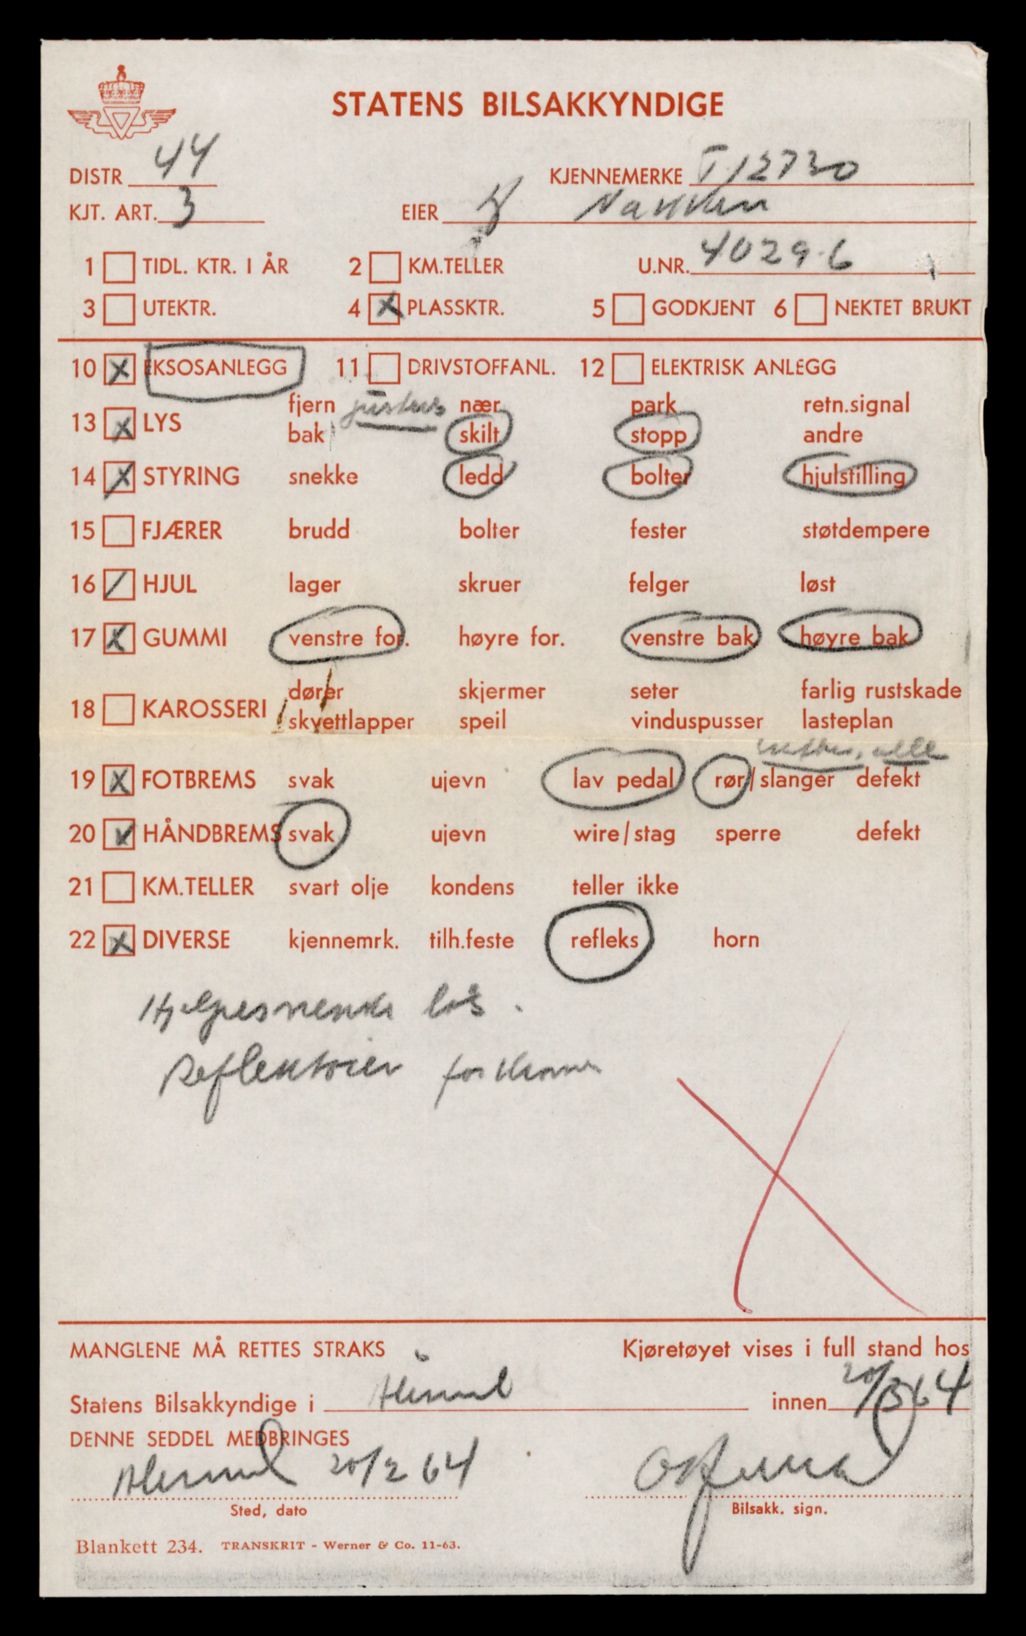 STATENS BILSAKKYNDIGE
DISTR 44 KJENNEMERKE T-12730
KJT. ART. 3 EIER Nakken
1 TIDL. KTR. I ÅR 2 KM.TELLER U.NR. 40296
3 UTEKTR. 4 X PLASSKTR. 5 GODKJENT 6 NEKTET BRUKT
10 X EKSOSANLEGG 11 DRIVSTOFFANL. 12 ELEKTRISK ANLEGG
fjern justeres nær park retn.signal
13 X LYS
bak skilt stopp andre
14 X STYRING snekke ledd bolter hjulstilling
15 FJÆRER brudd bolter fester støtdempere
16 / HJUL lager skruer felger løst
17 X GUMMI venstre for. høyre for. venstre bak høyre bak
dører skjermer seter farlig rustskade
18 KAROSSERI
skvettlapper speil vinduspusser lasteplan
alle
19 X FOTBREMS svak ujevn lav pedal rør/slanger defekt
20 X HÅNDBREMS svak ujevn wire/stag sperre defekt
21 KM.TELLER svart olje kondens teller ikke
22 X DIVERSE kjennemrk. tilh.feste refleks horn
løs.
Reflektorer
MANGLENE MÅ RETTES STRAKS Kjøretøyet vises i full stand hos
Statens Bilsakkyndige i Ålesund innen 20/3 64
DENNE SEDDEL MEDBRINGES
Ålesund 20/2 64
Sted, dato Bilsakk. sign.
Blankett 234. TRANSKRIT - Werner & Co. 11-63.